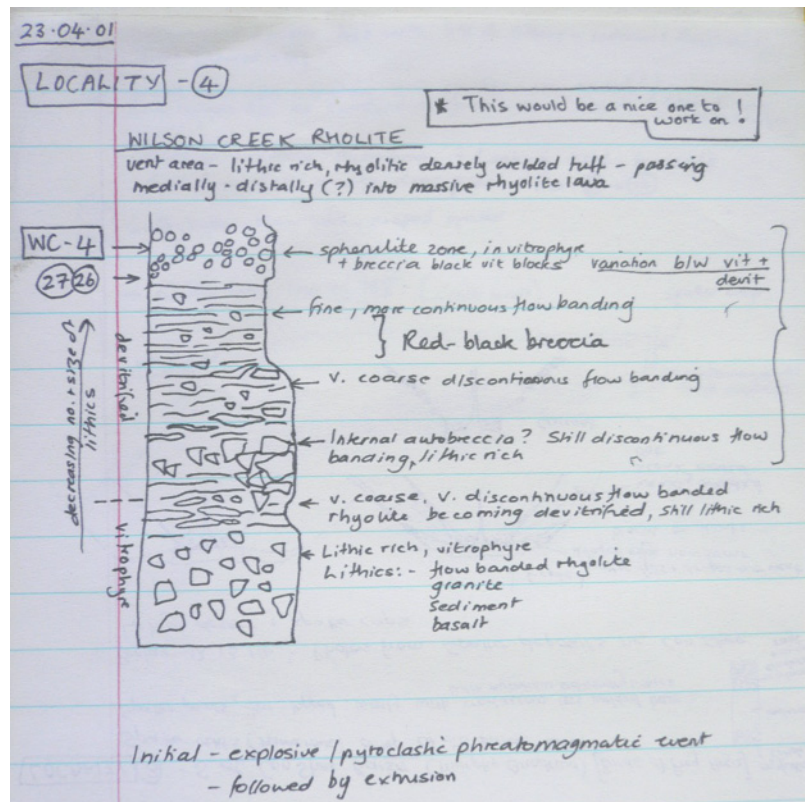 23.04.01
LOCALITY - 4
* This would be a nice one to
work on !
WILSON CREEK RHOLITE
vent area - lithic rich, rhyolitic densely welded tuff - passing
medially - distally (?) into massive rhyolite lava
WC-4
27 26
spherulite zone, in vitrophyre
+ breccia black vit blocks
variation b/w vit +
devit
fine, more continuous flow banding
Red-black breccia
v. coarse discontinous flow banding
Internal autobreccia? Still discontinuous flow
banding, lithic rich
v. coarse, v. discontinuous flow banded
rhyolite becoming devitrified, still lithic rich
Lithic rich, vitrophyre
Lithics:- flow banded rhyolite
granite
sediment
basalt
decreasing no. + size of
lithics
devitrified
vitrophyre
Initial - explosive / pyroclastic phreatomagmatic event
- followed by extrusion